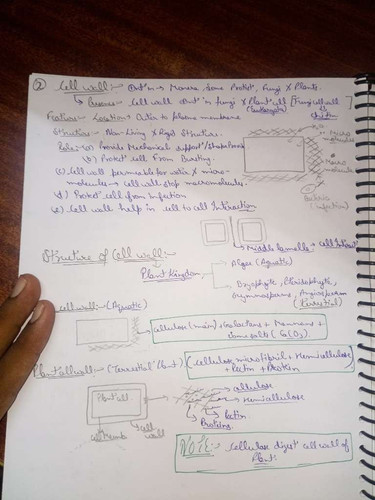 ② Cell wall:- Out in → Monera Some Protist, Fungi X Plants.
↳ Presence- Cell wall Out in fungi X Plant cell [Fungi cell wall
(Eukaryotes) ↓
chitin]
Features- Location- Outer to plasma membrane
Structure- Non-living X Rigid Structure.
Role- (a) Provide Mechanical support/
(b) Protect cell from Bursting.
(c) Cell wall permeable for water X micro-
molecules → cell wall stop macromolecules.
(d) Protect cell from infection
(e) Cell wall help in cell to cell Interaction
Micro
molecules
Macro
molecules
Bacteria
(infection)
Middle lamella → cell
Structure of Cell wall:-
Plant Kingdom
Algae (Aquatic)
Bryophyte, Pteridophyte,
Gymnosperms, Angiosperm
(Terrestial)
cell wall:- (Aquatic)
Cellulose (main) + Galactans + Mannans +
some salts (CaCO3).
Plant cell wall:- (Terrestial Plant) (Cellulose microfibril + Hemicellulose)
+ Pectin + Protein
Plant cell.
cell memb
cell
wall
cellulose
Hemicellulose
Pectin
Proteins.
NOTE:- Cellulose digest cell wall of
Plant.